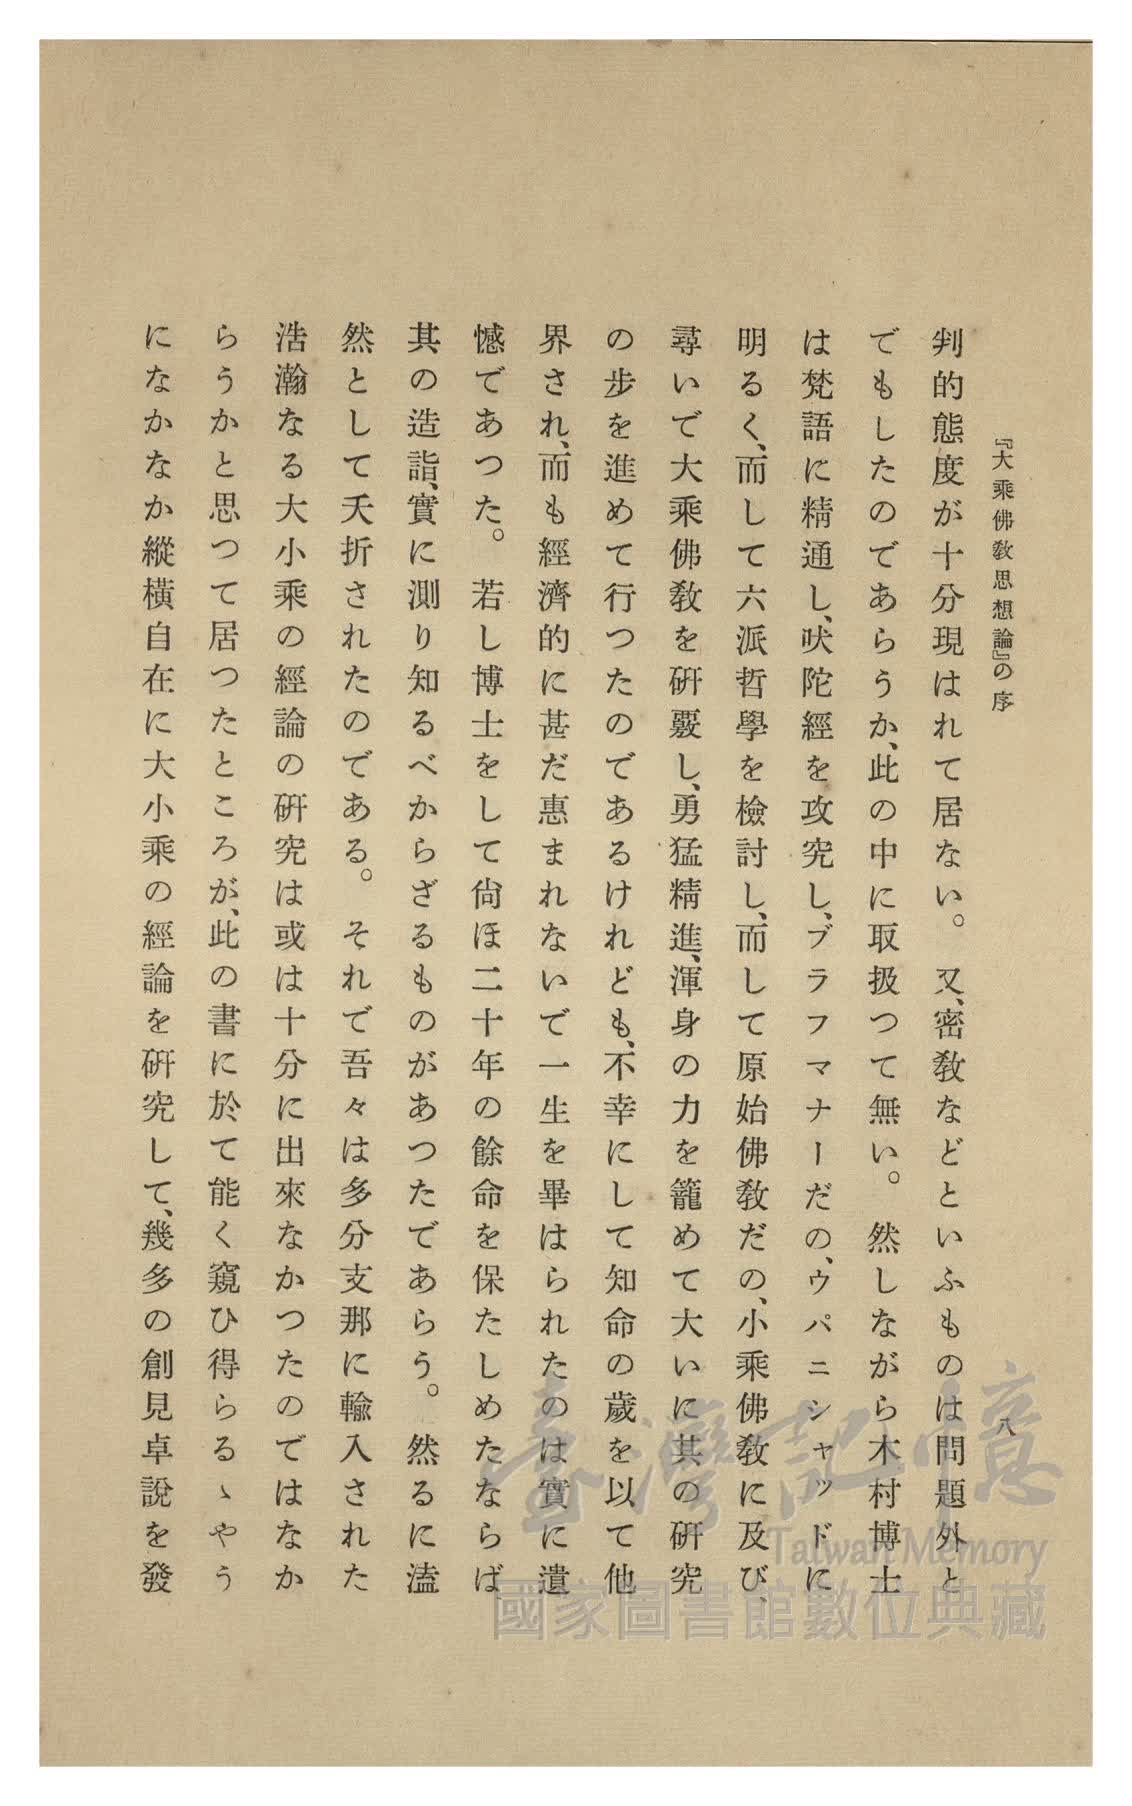 『大乘佛敎思想論』の序
八
判的態度が十分現はれて居ない。又、密敎などといふものは問題外と
でもしたのであらうか、此の中に取扱つて無い。然しながら木村博士
は梵語に精通し、吠陀經を攻究し、ブラフマナーだの、ウパニシャッドに
明るく、而して六派哲學を檢討し、而して原始佛敎だの、小乘佛敎に及び、
尋いで大乘佛敎を硏覈し、勇猛精進、渾身の力を籠めて大いに其の硏究
の步を進めて行つたのであるけれども、不幸にして知命の歲を以て他
界され、而も經濟的に甚だ惠まれないで一生を畢はられたのは實に遺
憾であつた。若し博士をして尙ほ二十年の餘命を保たしめたならば、
其の造詣、實に測り知るべからざるものがあつたであらう。然るに溘
然として夭折されたのである。それで吾々は多分支那に輸入された
浩瀚なる大小乘の經論の硏究は或は十分に出來なかつたのではなか
らうかと思つて居つたところが、此の書に於て能く窺ひ得らるゝやう
になかなか縱橫自在に大小乘の經論を硏究して、幾多の創見卓說を發
臺灣記憶
Taiwan Memory
國家圖書館數位典藏